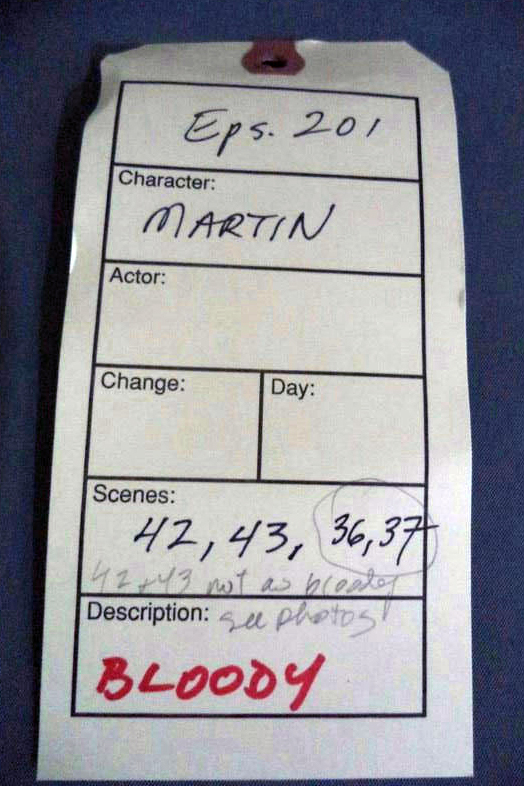 Eps. 201
Character:
MARTIN
Actor:
Change: Day:
Scenes:
42, 43, 36, 37
42+43 not as bloody
Description: see photos
BLOODY